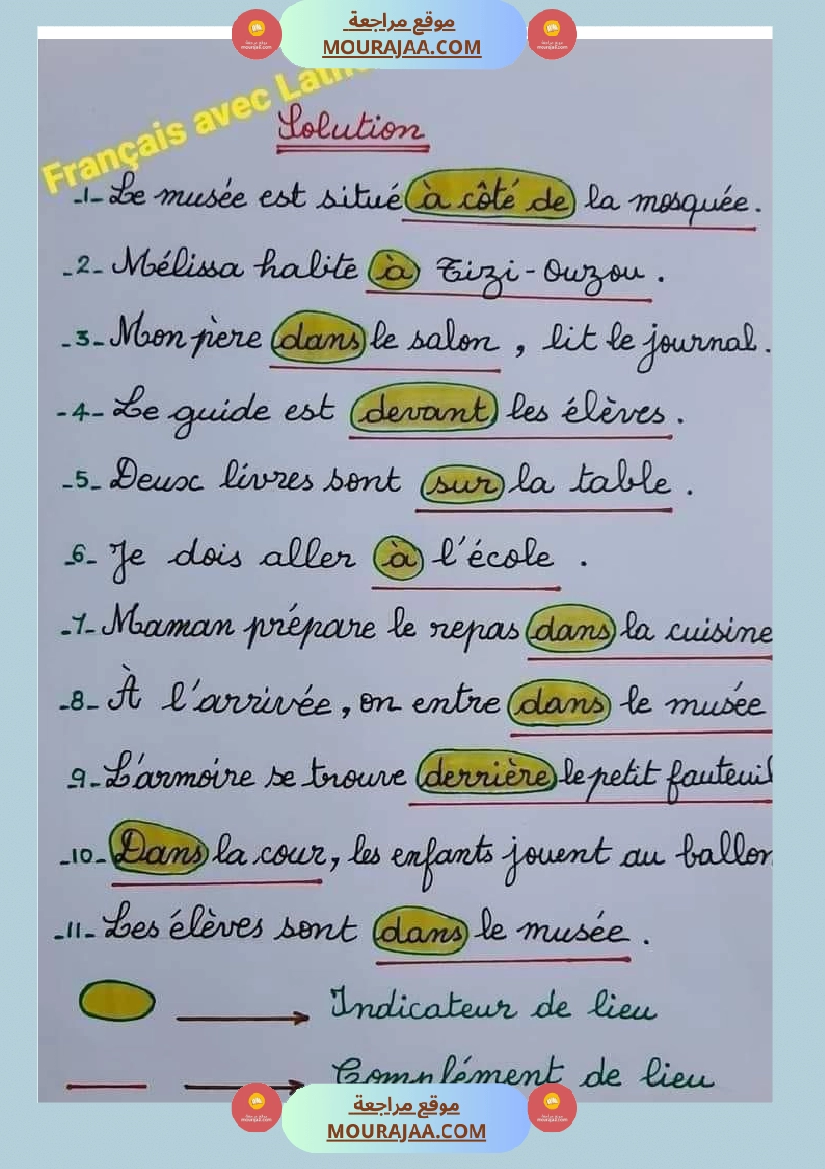 موقع مراجعة
MOURAJAA.COM
Français avec
Solution
-1- Le musée est situé à côté de la mosquée.
-2- Mélissa habite à Tizi-Ouzou.
-3- Mon père dans le salon, lit le journal.
-4- Le guide est devant les élèves.
-5- Deux livres sont sur la table.
-6- Je dois aller à l'école.
-7- Maman prépare le repas dans la cuisine
-8- À l'arrivée, on entre dans le musée
-9- L'armoire se trouve derrière le petit fauteuil
-10- Dans la cour, les enfants jouent au ballon
-11- Les élèves sont dans le musée.
Indicateur de lieu
Complément de lieu
موقع مراجعة
MOURAJAA.COM